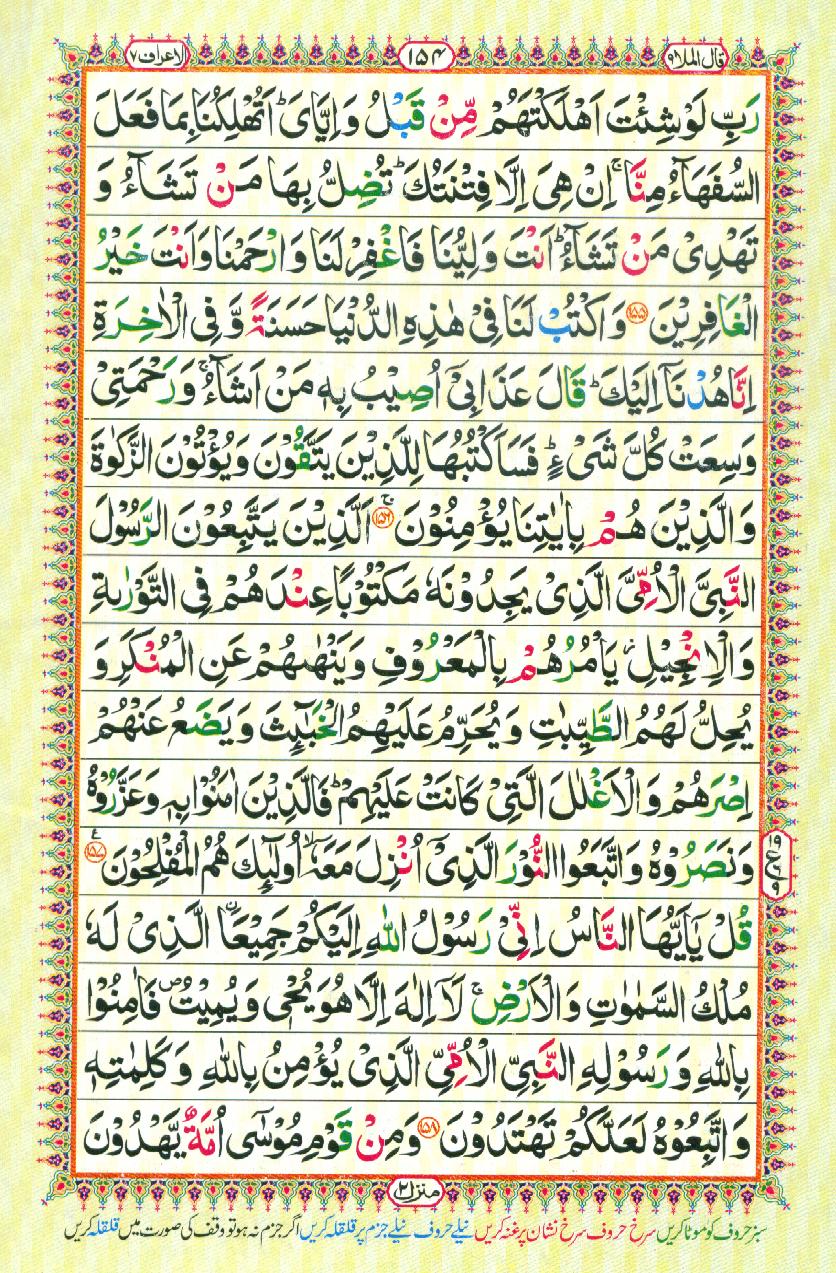 قال الملا۹ ۱۵۴ الاعراف۷
رَبِّ لَوْ شِئْتَ اَهْلَكْتَهُمْ مِّنْ قَبْلُ وَ اِيَّايَ ؕ اَتُهْلِكُنَا بِمَا فَعَلَ
السُّفَهَآءُ مِنَّا ۚ اِنْ هِيَ اِلَّا فِتْنَتُكَ ؕ تُضِلُّ بِهَا مَنْ تَشَآءُ وَ
تَهْدِيْ مَنْ تَشَآءُ ؕ اَنْتَ وَلِيُّنَا فَاغْفِرْ لَنَا وَ ارْحَمْنَا وَ اَنْتَ خَيْرُ
الْغَافِرِيْنَ ۱۵۵ وَ اكْتُبْ لَنَا فِيْ هٰذِهِ الدُّنْيَا حَسَنَةً وَّ فِي الْاٰخِرَةِ
اِنَّا هُدْنَاۤ اِلَيْكَ ؕ قَالَ عَذَابِيْۤ اُصِيْبُ بِهٖ مَنْ اَشَآءُ ۚ وَ رَحْمَتِيْ
وَسِعَتْ كُلَّ شَيْءٍ ؕ فَسَاَكْتُبُهَا لِلَّذِيْنَ يَتَّقُوْنَ وَ يُؤْتُوْنَ الزَّكٰوةَ
وَ الَّذِيْنَ هُمْ بِاٰيٰتِنَا يُؤْمِنُوْنَ ۱۵۶ ج اَلَّذِيْنَ يَتَّبِعُوْنَ الرَّسُوْلَ
النَّبِيَّ الْاُمِّيَّ الَّذِيْ يَجِدُوْنَهٗ مَكْتُوْبًا عِنْدَهُمْ فِي التَّوْرٰىةِ
وَ الْاِنْجِيْلِ ؗ يَاْمُرُهُمْ بِالْمَعْرُوْفِ وَ يَنْهٰىهُمْ عَنِ الْمُنْكَرِ وَ
يُحِلُّ لَهُمُ الطَّيِّبٰتِ وَ يُحَرِّمُ عَلَيْهِمُ الْخَبٰٓىِٕثَ وَ يَضَعُ عَنْهُمْ
اِصْرَهُمْ وَ الْاَغْلٰلَ الَّتِيْ كَانَتْ عَلَيْهِمْ ؕ فَالَّذِيْنَ اٰمَنُوْا بِهٖ وَ عَزَّرُوْهُ
وَ نَصَرُوْهُ وَ اتَّبَعُوا النُّوْرَ الَّذِيْۤ اُنْزِلَ مَعَهٗۤ ۙ اُولٰٓىِٕكَ هُمُ الْمُفْلِحُوْنَ ۱۵۷ ع
قُلْ يٰۤاَيُّهَا النَّاسُ اِنِّيْ رَسُوْلُ اللّٰهِ اِلَيْكُمْ جَمِيْعَا ِ۟الَّذِيْ لَهٗ
مُلْكُ السَّمٰوٰتِ وَ الْاَرْضِ ۚ لَاۤ اِلٰهَ اِلَّا هُوَ يُحْيٖ وَ يُمِيْتُ ۪ فَاٰمِنُوْا
بِاللّٰهِ وَ رَسُوْلِهِ النَّبِيِّ الْاُمِّيِّ الَّذِيْ يُؤْمِنُ بِاللّٰهِ وَ كَلِمٰتِهٖ
وَ اتَّبِعُوْهُ لَعَلَّكُمْ تَهْتَدُوْنَ ۱۵۸ وَ مِنْ قَوْمِ مُوْسٰۤى اُمَّةٌ يَّهْدُوْنَ
منزل۲
سبز حروف کو موٹا کریں سرخ حروف سرخ نشان پر غنہ کریں نیلے حروف نیلے جزم پر قلقلہ کریں اگر جزم نہ ہو تو وقف کی صورت میں قلقلہ کریں